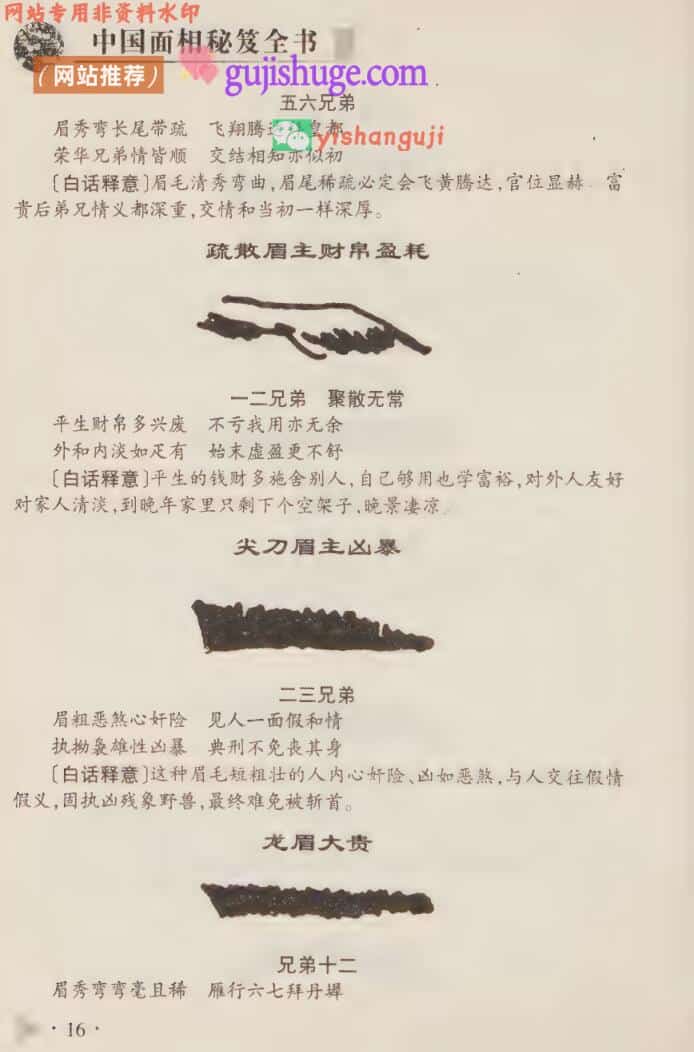 网站专用非资料水印
中国面相秘笈全书
(网站推荐)
gujishuge.com
五六兄弟
眉秀弯长尾带疏 飞翔腾达 皇都
yishanguji
荣华兄弟情皆顺 交结相知亦似初
[白话释意]眉毛清秀弯曲,眉尾稀疏必定会飞黄腾达,官位显赫 富
贵后弟兄情义都深重,交情和当初一样深厚。
疏散眉主财帛盈耗
一二兄弟 聚散无常
平生财帛多兴废 不亏我用亦无余
外和内淡如疋有 始末虚盈更不舒
[白话释意]平生的钱财多施舍别人,自己够用也学富裕,对外人友好
对家人清淡,到晚年家里只剩下个空架子,晚景凄凉
尖刀眉主凶暴
二三兄弟
眉粗恶煞心奸险 见人一面假和情
执拗袅雄性凶暴 典刑不免丧其身
[白话释意]这种眉毛短粗壮的人内心奸险、凶如恶煞,与人交往假情
假义,固执凶残象野兽,最终难免被斩首。
龙眉大贵
兄弟十二
眉秀弯弯毫且稀 雁行六七拜丹墀
·16·